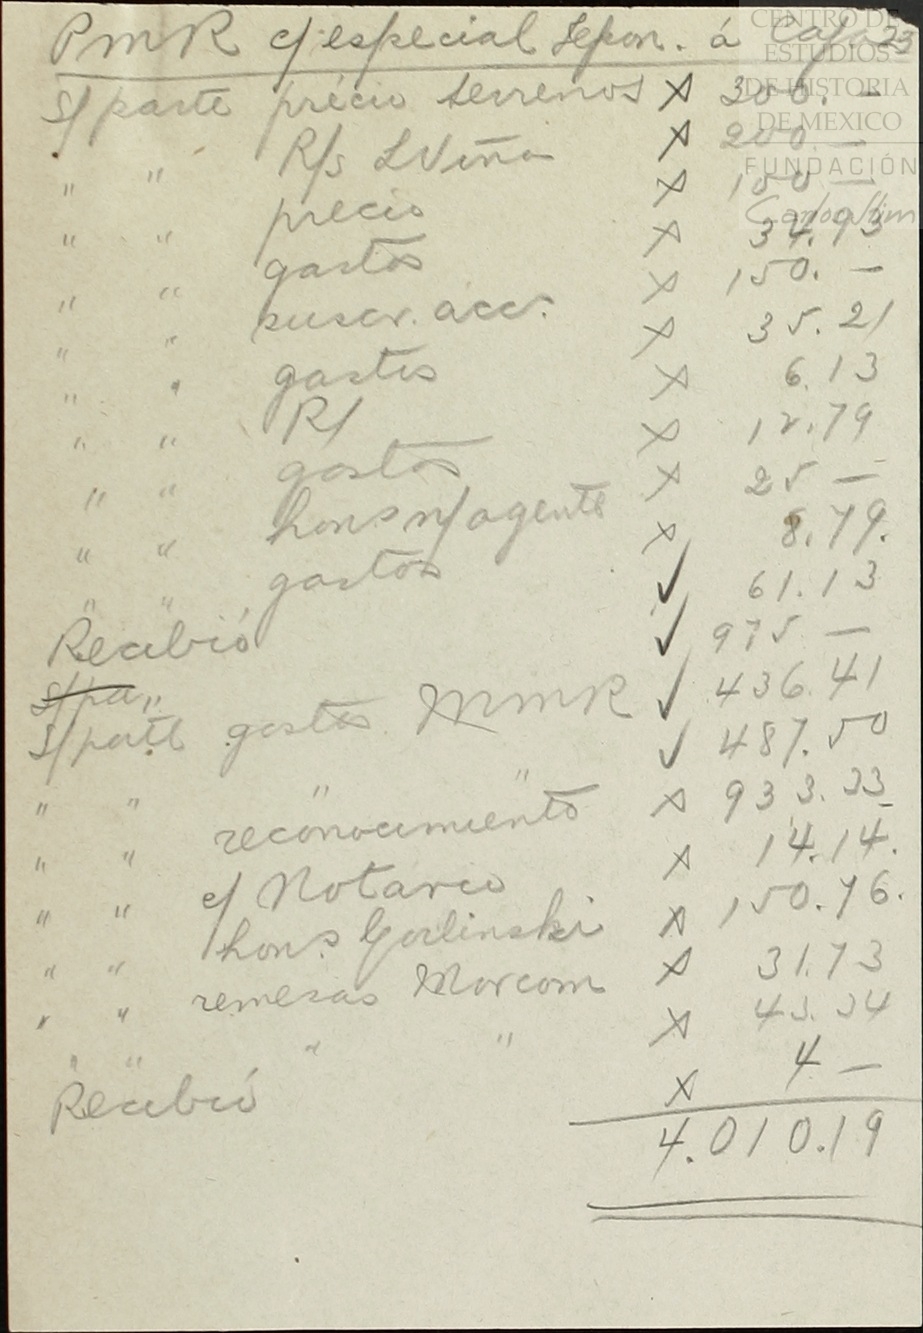 PMR c/ especial Depon. á Caja 23
s/parte précio terrenos X 300. —
" " R/s LViña X 200. —
" " precio X 100 —
" " gastos X 34.93
" " suscr. acc. X 150. —
" " gastos X 35.21
" " R/ X 6.13
" " gastos X 12.79
" " hons n/agente X 25 —
" " gastos X 8.79.
Recibió ✓ 61.13
S/pa " ✓ 975 —
S/parte gastos MMR ✓ 436.41
" " " " ✓ 487.50
" " reconocimiento X 933.33
" " c/ Notario X 14.14.
" " hons X 150.76.
" " remesas Morcom X 31.73
" " " " X 43.34
Recibió X 4 —
4.010.19
CENTRO DE
ESTUDIOS
DE HISTORIA
DE MEXICO
FUNDACIÓN
Carlos Slim